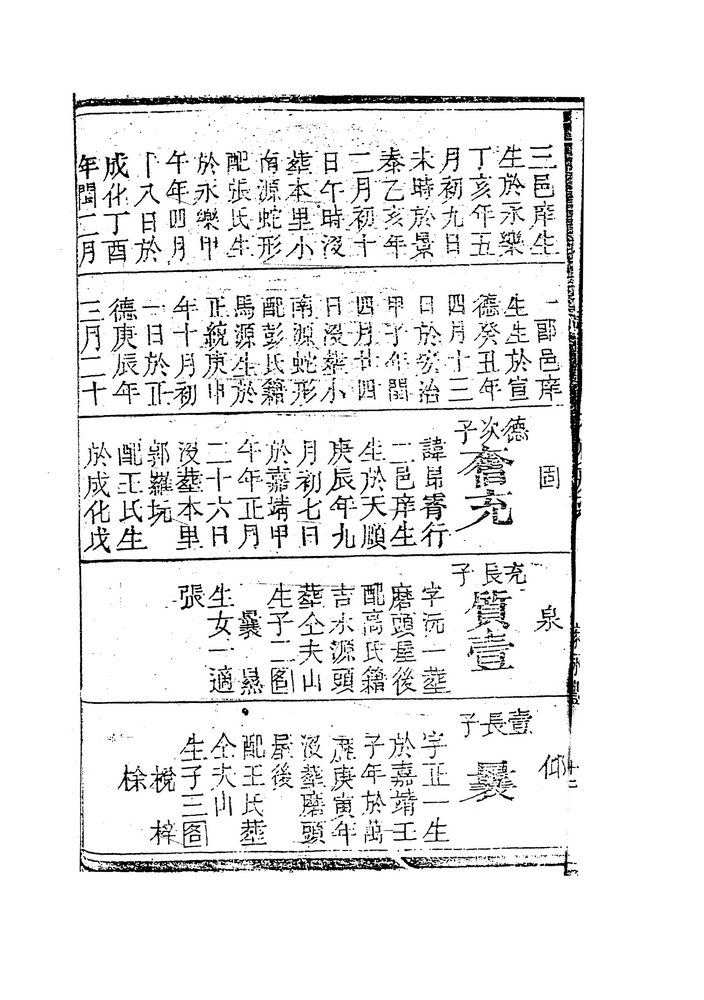 三邑庠生
生於永樂
丁亥年五
月初九日
未時於景
泰乙亥年
二月初十
日午時沒
塟本里小
南源蛇形
配張氏生
於永樂甲
午年四月
十八日於
成化丁酉
年閏二月
一郡邑庠
生生於宣
德癸丑年
四月十三
日於宏治
甲子年閏
四月廿四
日沒塟小
南源蛇形
配彭氏籍
馬源生於
正統庚申
年十月初
一日於正
德庚辰年
三月二十
固
德次子
奮充
諱昻霄行
二邑庠生
生於天順
庚辰年九
月初七日
於嘉靖甲
午年正月
二十六日
沒塟本里
郭羅坑
配王氏生
於成化戊
泉
充長子
質壹
字沅一塟
磨頭屋後
配高氏籍
吉水源頭
塟仝夫山
生子二图
曩 暠
生女一適
張
仰
壹長子
曩
字正一生
於嘉靖壬
子年於萬
厯庚寅年
沒塟磨頭
屋後
配王氏塟
仝夫山
生子三图
梲 梓
梌